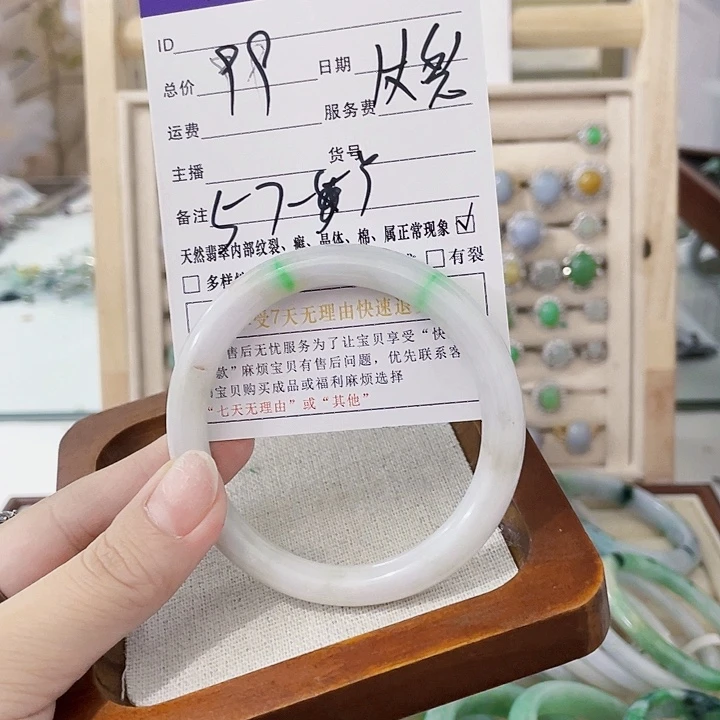 ID
总价 99 日期
运费 服务费
主播 货号
备注 57-
天然翡翠内部纹裂、癣、晶体、棉、属正常现象 ☑
□ 多样 □ 有裂
受7天无理由快速退
售后无忧服务为了让宝贝享受“快
款”麻烦宝贝有售后问题，优先联系客
宝贝购买成品或福利麻烦选择
“七天无理由”或“其他”